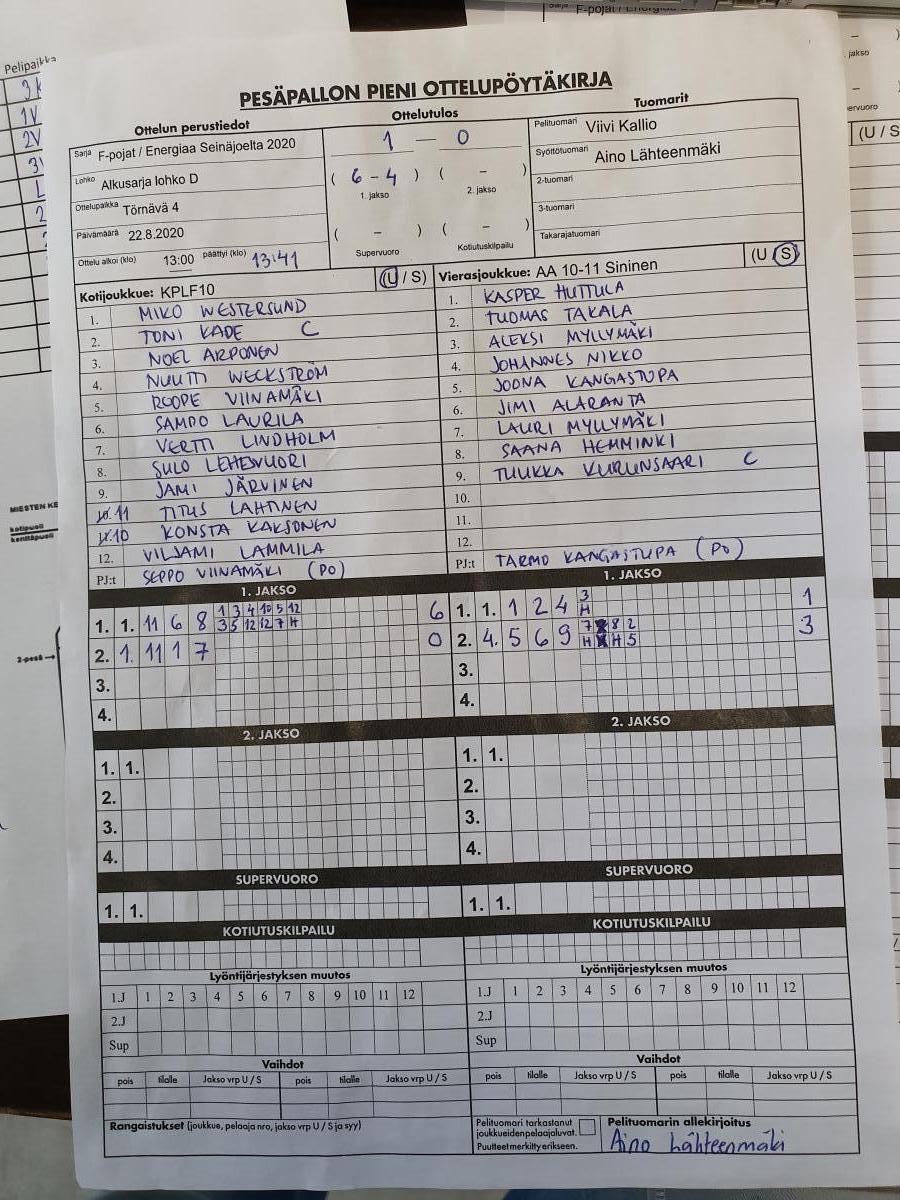 F-pojat / Energiaa
Pelipaikka
PESÄPALLON PIENI OTTELUPÖYTÄKIRJA
Ottelun perustiedot
Sarja F-pojat / Energiaa Seinäjoelta 2020
Lohko Alkusarja lohko D
Ottelupaikka Törnävä 4
Päivämäärä 22.8.2020
Ottelu alkoi (klo) 13:00 päättyi (klo) 13:41
Ottelutulos
1 – 0
( 6 - 4 ) ( – )
1. jakso 2. jakso
( – ) ( – )
Supervuoro Kotiutuskilpailu
Tuomarit
Pelituomari Viivi Kallio
Syöttötuomari Aino Lähteenmäki
2-tuomari
3-tuomari
Takarajatuomari
Kotijoukkue: KPLF10 (U / S)
1. MIKO WESTERSUND
2. TONI KADE C
3. NOEL ARPONEN
4. NUUTTI WECKSTRÖM
5. ROOPE VIINAMÄKI
6. SAMPO LAURILA
7. VERTTI LINDHOLM
8. SULO LEHESVUORI
9. JAMI JÄRVINEN
10. 11 TITUS LAHTINEN
11. 10 KONSTA KAKSONEN
12. VILJAMI LAMMILA
PJ:t SEPPO VIINAMÄKI (PO)
Vierasjoukkue: AA 10-11 Sininen (U / S)
1. KASPER HUTTULA
2. TUOMAS TAKALA
3. ALEKSI MYLLYMÄKI
4. JOHANNES NIKKO
5. JOONA KANGASTUPA
6. JIMI ALARANTA
7. LAURI MYLLYMÄKI
8. SAANA HEMMINKI
9. TUUKKA KURUNSAARI C
10.
11.
12.
PJ:t TARMO KANGASTUPA (PO)
1. JAKSO
1. 1. 11 6 8 1 3 4 10 5 12 6
3 5 12 12 7 H
2. 1. 11 1 7 0
3.
4.
1. JAKSO
1. 1. 1 2 4 3 1
H
2. 4. 5 6 9 7 8 2 3
H H 5
3.
4.
2. JAKSO
1. 1.
2.
3.
4.
2. JAKSO
1. 1.
2.
3.
4.
SUPERVUORO
1. 1.
SUPERVUORO
1. 1.
KOTIUTUSKILPAILU
KOTIUTUSKILPAILU
Lyöntijärjestyksen muutos
1.J 1 2 3 4 5 6 7 8 9 10 11 12
2.J
Sup
Lyöntijärjestyksen muutos
1.J 1 2 3 4 5 6 7 8 9 10 11 12
2.J
Sup
Vaihdot
pois tilalle Jakso vrp U / S pois tilalle Jakso vrp U / S
Vaihdot
pois tilalle Jakso vrp U / S pois tilalle Jakso vrp U / S
Rangaistukset (joukkue, pelaaja nro, jakso vrp U / S ja syy)
Pelituomari tarkastanut
joukkueidenpelaajaluvat.
Puutteet merkitty erikseen.
Pelituomarin allekirjoitus
Aino Lähteenmäki